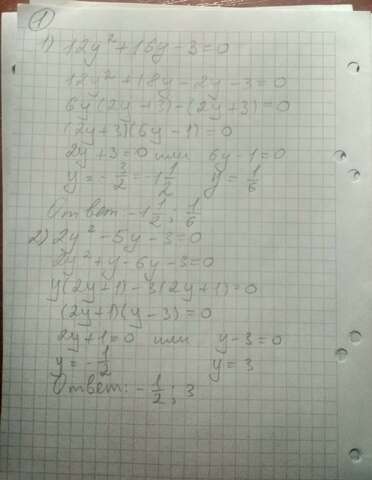 1
1) 12y² + 16y - 3 = 0
12y² + 18y - 2y - 3 = 0
6y(2y + 3) - (2y + 3) = 0
(2y + 3)(6y - 1) = 0
2y + 3 = 0 или 6y - 1 = 0
y = - 3/2 = -1 1/2 y = 1/6
Ответ: -1 1/2; 1/6
2) 2y² - 5y - 3 = 0
2y² + y - 6y - 3 = 0
y(2y + 1) - 3(2y + 1) = 0
(2y + 1)(y - 3) = 0
2y + 1 = 0 или y - 3 = 0
y = - 1/2 y = 3
Ответ: - 1/2; 3